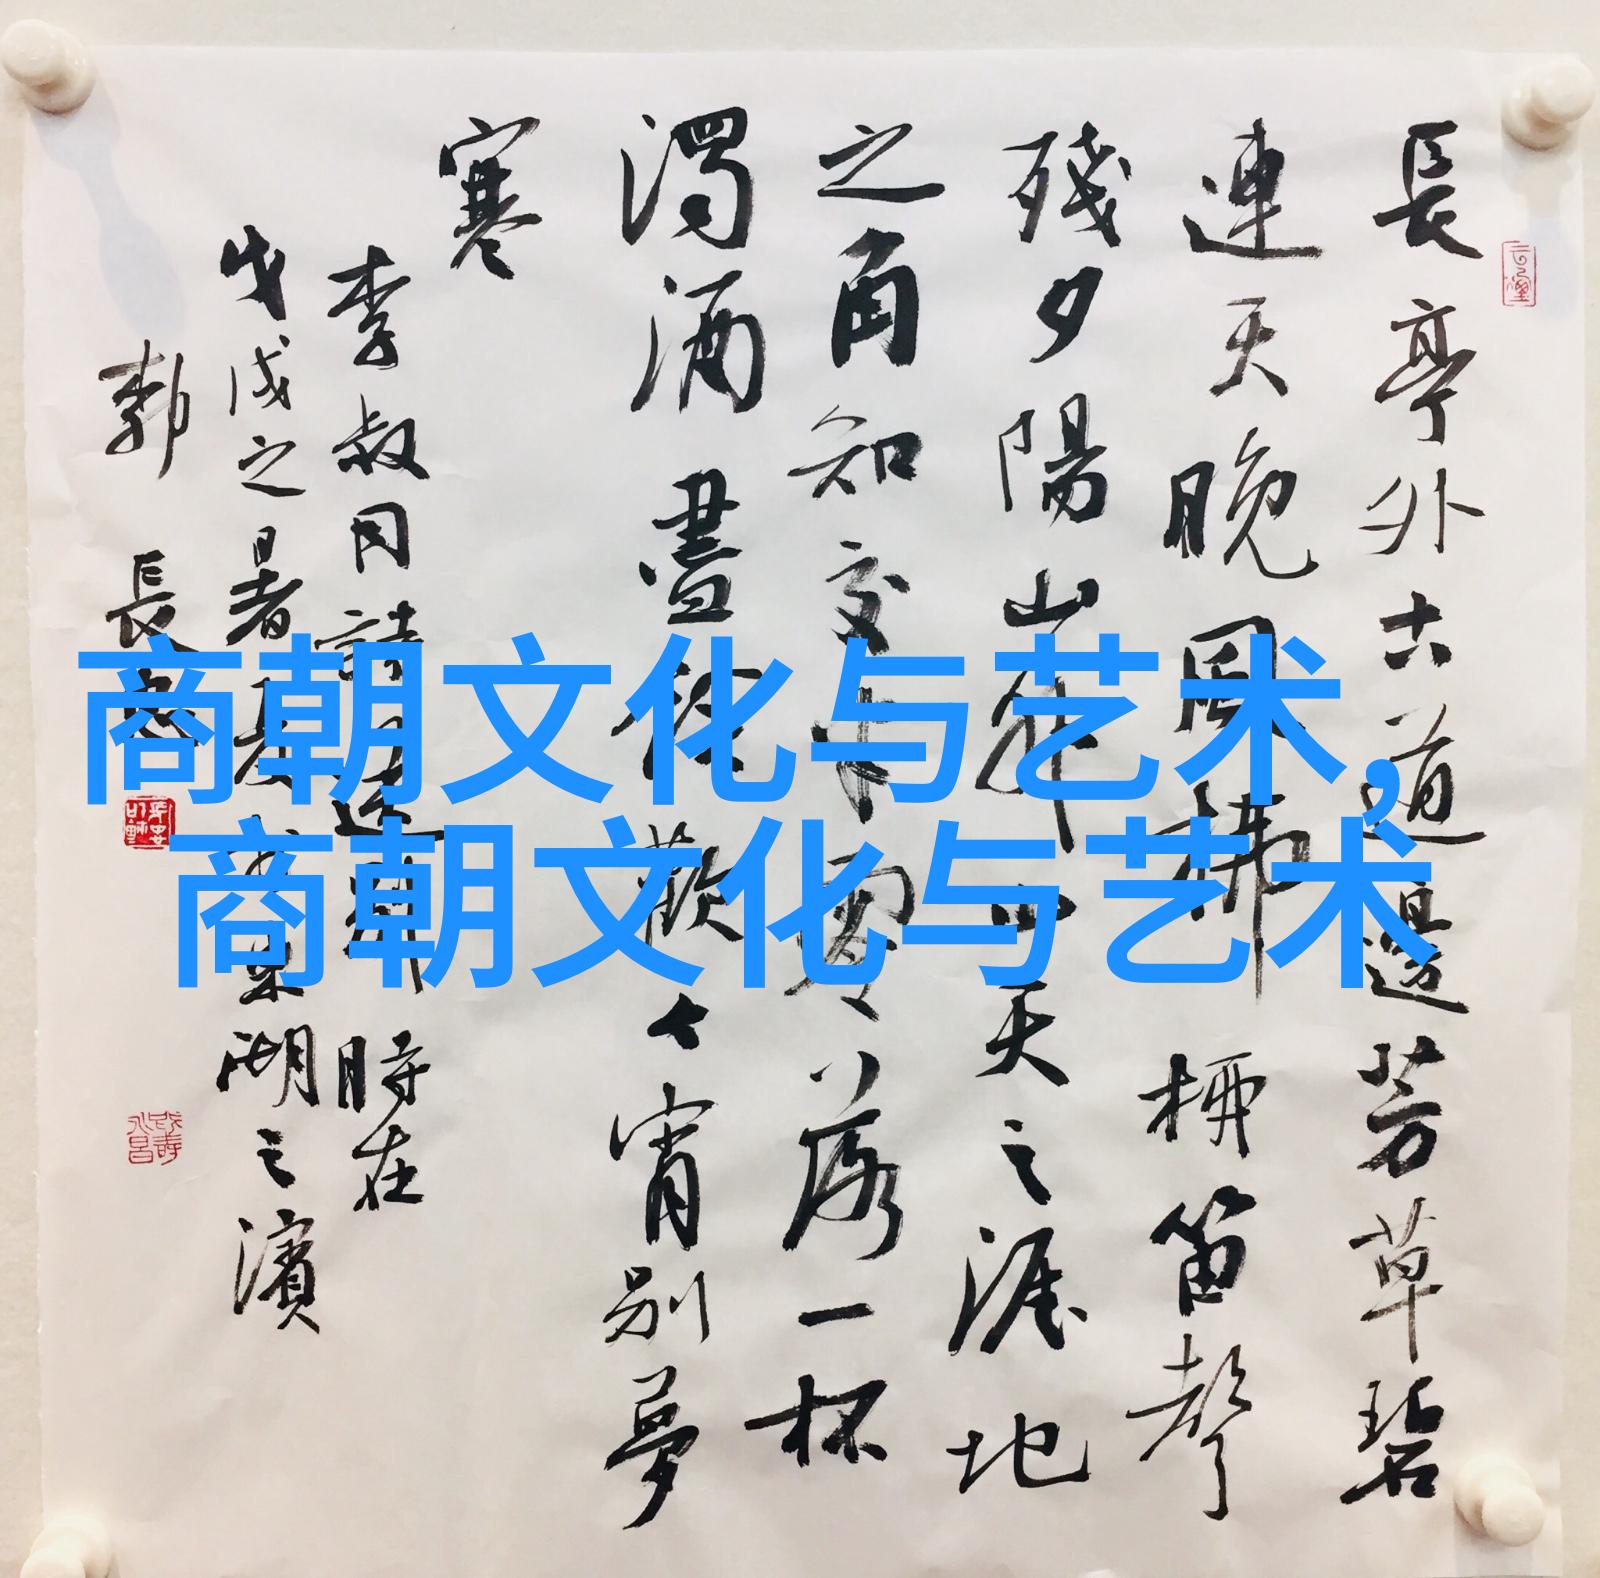 長亭外古道邊芳草碧
連天晚風拂柳笛聲
殘夕陽山外山天之涯地
之角知交半零落一杯
濁酒盡餘歡今宵別夢
寒
李叔同詩送別時在
戊戌之暑月於東湖之濱
郭長
商朝文化与艺术,
商朝文化与艺术